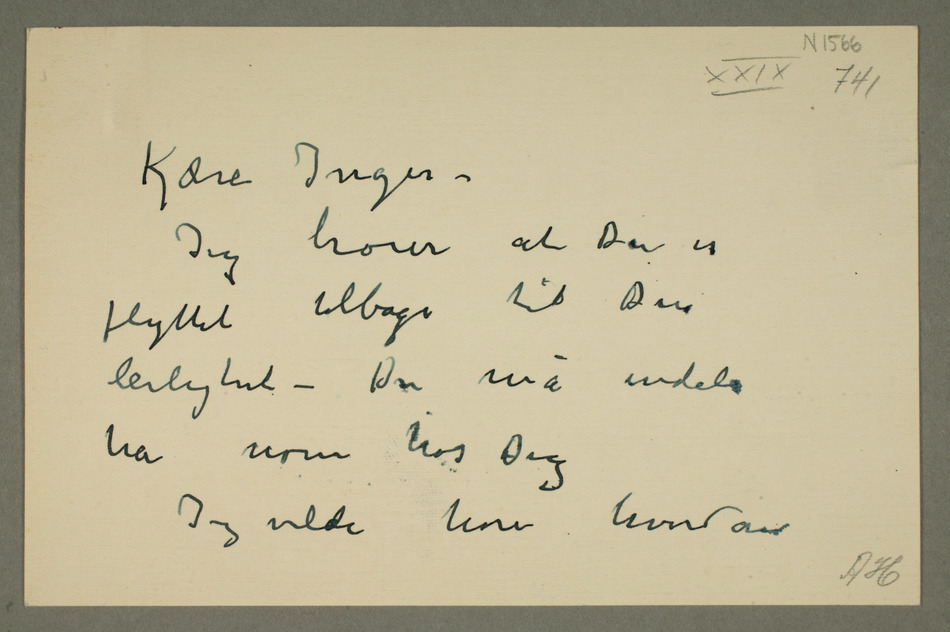 N 1566
XXIX 741
Kjære Inger –
Jeg hører at Du er
flyttet tilbage til Din
leilighet – Du må endelig
ha noen hos Dig
Jeg vilde høre hvordan
AH